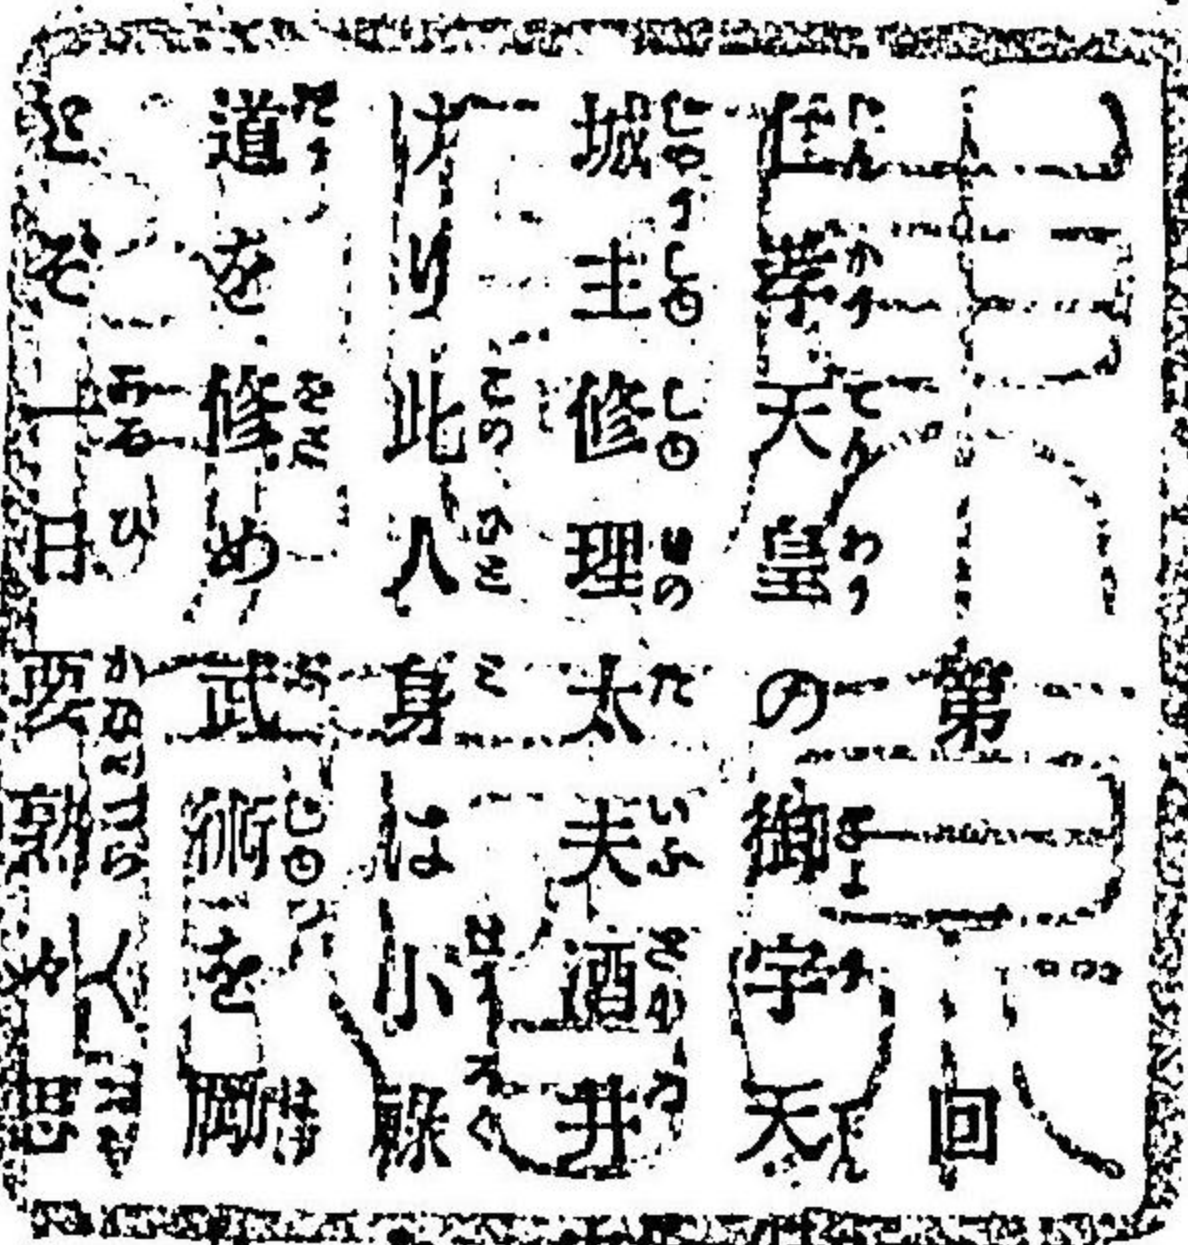 第　回
仁孝天皇の御宇天
城主修理太夫酒井
けり此人身は小祿
道を修め武術を勵
とぞ一日要熟々思